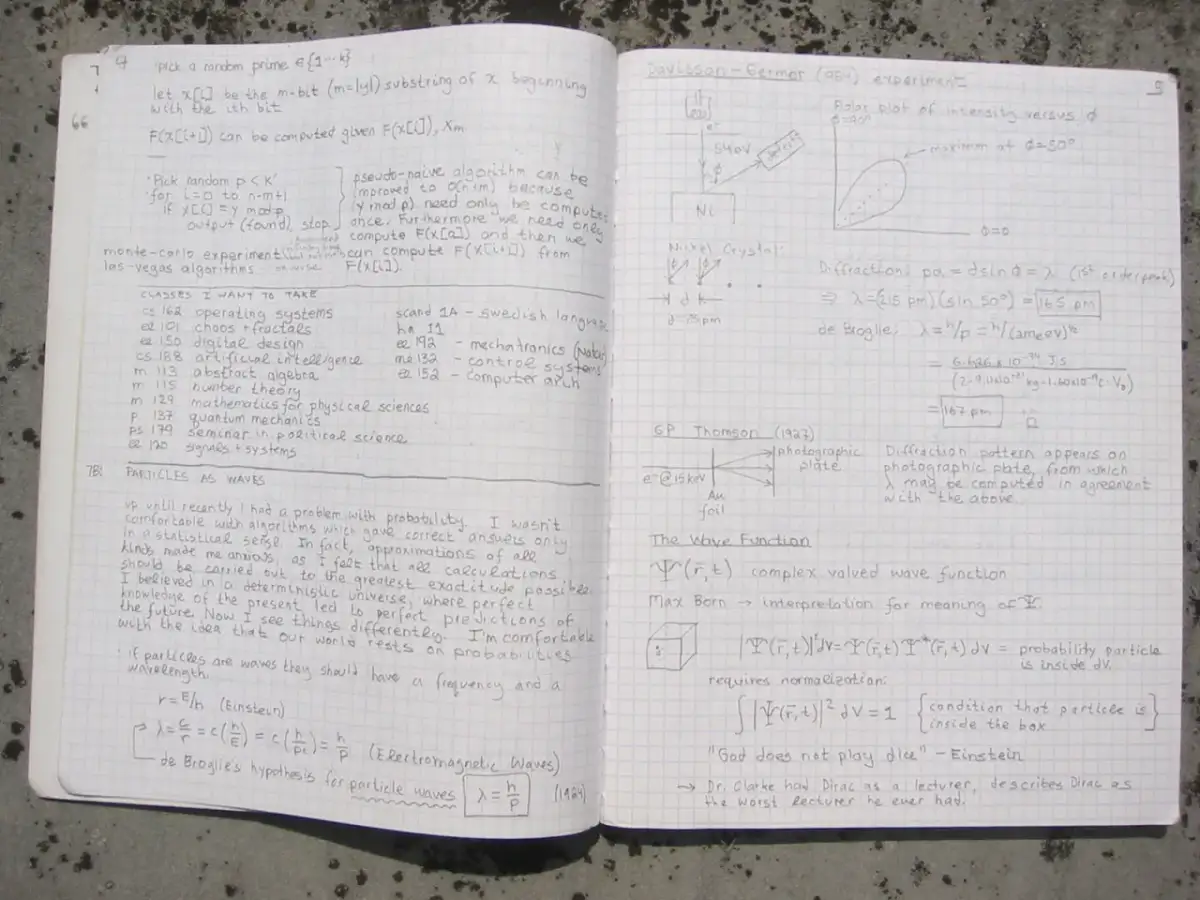 Pick a random prime ∈ {1...k}
let x[i] be the m-bit (m=|y|) substring of x beginning
with the ith bit
66
F(x[i+1]) can be computed given F(x[i]), Xm
'Pick random p < K'
'for i=0 to n-m+1
if x[i] = y mod p
output (found), stop.
pseudo-naive algorithm can be
improved to O(n+m) because
(y mod p) need only be computed
once. Furthermore we need only
compute F(x[0]) and then we
can compute F(x[i+1]) from
F(x[i]).
monte-carlo experiment
las-vegas algorithms
CLASSES I WANT TO TAKE
cs 162 operating systems
ee 101 chaos + fractals
ee 150 digital design
cs 188 artificial intelligence
m 113 abstract algebra
m 115 number theory
m 129 mathematics for physical sciences
p 137 quantum mechanics
ps 179 seminar in political science
ee 120 signals + systems
scand 1A - swedish language
hn 11
ee 192 - mechatronics
me 132 - control systems
ee 152 - computer arch
7B: PARTICLES AS WAVES
up until recently I had a problem with probability. I wasn't
comfortable with algorithms which gave correct answers only
in a statistical sense. In fact, approximations of all
kinds made me anxious, as I felt that all calculations
should be carried out to the greatest exactitude possible.
I believed in a deterministic universe, where perfect
knowledge of the present led to perfect predictions of
the future. Now I see things differently. I'm comfortable
with the idea that our world rests on probabilities
if particles are waves they should have a frequency and a
wavelength.
r = E/h (Einstein)
λ = c/r = c(h/E) = c(h/pc) = h/p (Electromagnetic Waves)
de Broglie's hypothesis for particle waves λ = h/p (1924)
9
Davisson-Germer (1954) experiment
e⁻
54eV
ϕ
Detector
Ni
Polar plot of intensity versus ϕ
ϕ=90°
maximum at ϕ=50°
ϕ=0
Nickel Crystal:
ϕ ϕ
d
Diffraction: pd = d sin ϕ = λ (1st order peak)
⇒ λ = (215 pm)(sin 50°) = 165 pm
de Broglie: λ = h/p = h/(2meV)^½
= 6.626 x 10⁻³⁴ J·S
= 167 pm
GP Thomson (1927)
e⁻ @ 15keV
Au
foil
photographic
plate
Diffraction pattern appears on
photographic plate, from which
λ may be computed in agreement
with the above.
The Wave Function
Ψ(r̄,t) complex valued wave function
Max Born → interpretation for meaning of Ψ.
|Ψ(r̄,t)|²dV = Ψ(r̄,t) Ψ*(r̄,t) dV = probability particle
is inside dV.
requires normalization:
∫|Ψ(r̄,t)|² dV = 1 {condition that particle is
inside the box}
"God does not play dice" - Einstein
→ Dr. Clarke had Dirac as a lecturer, describes Dirac as
the worst lecturer he ever had.